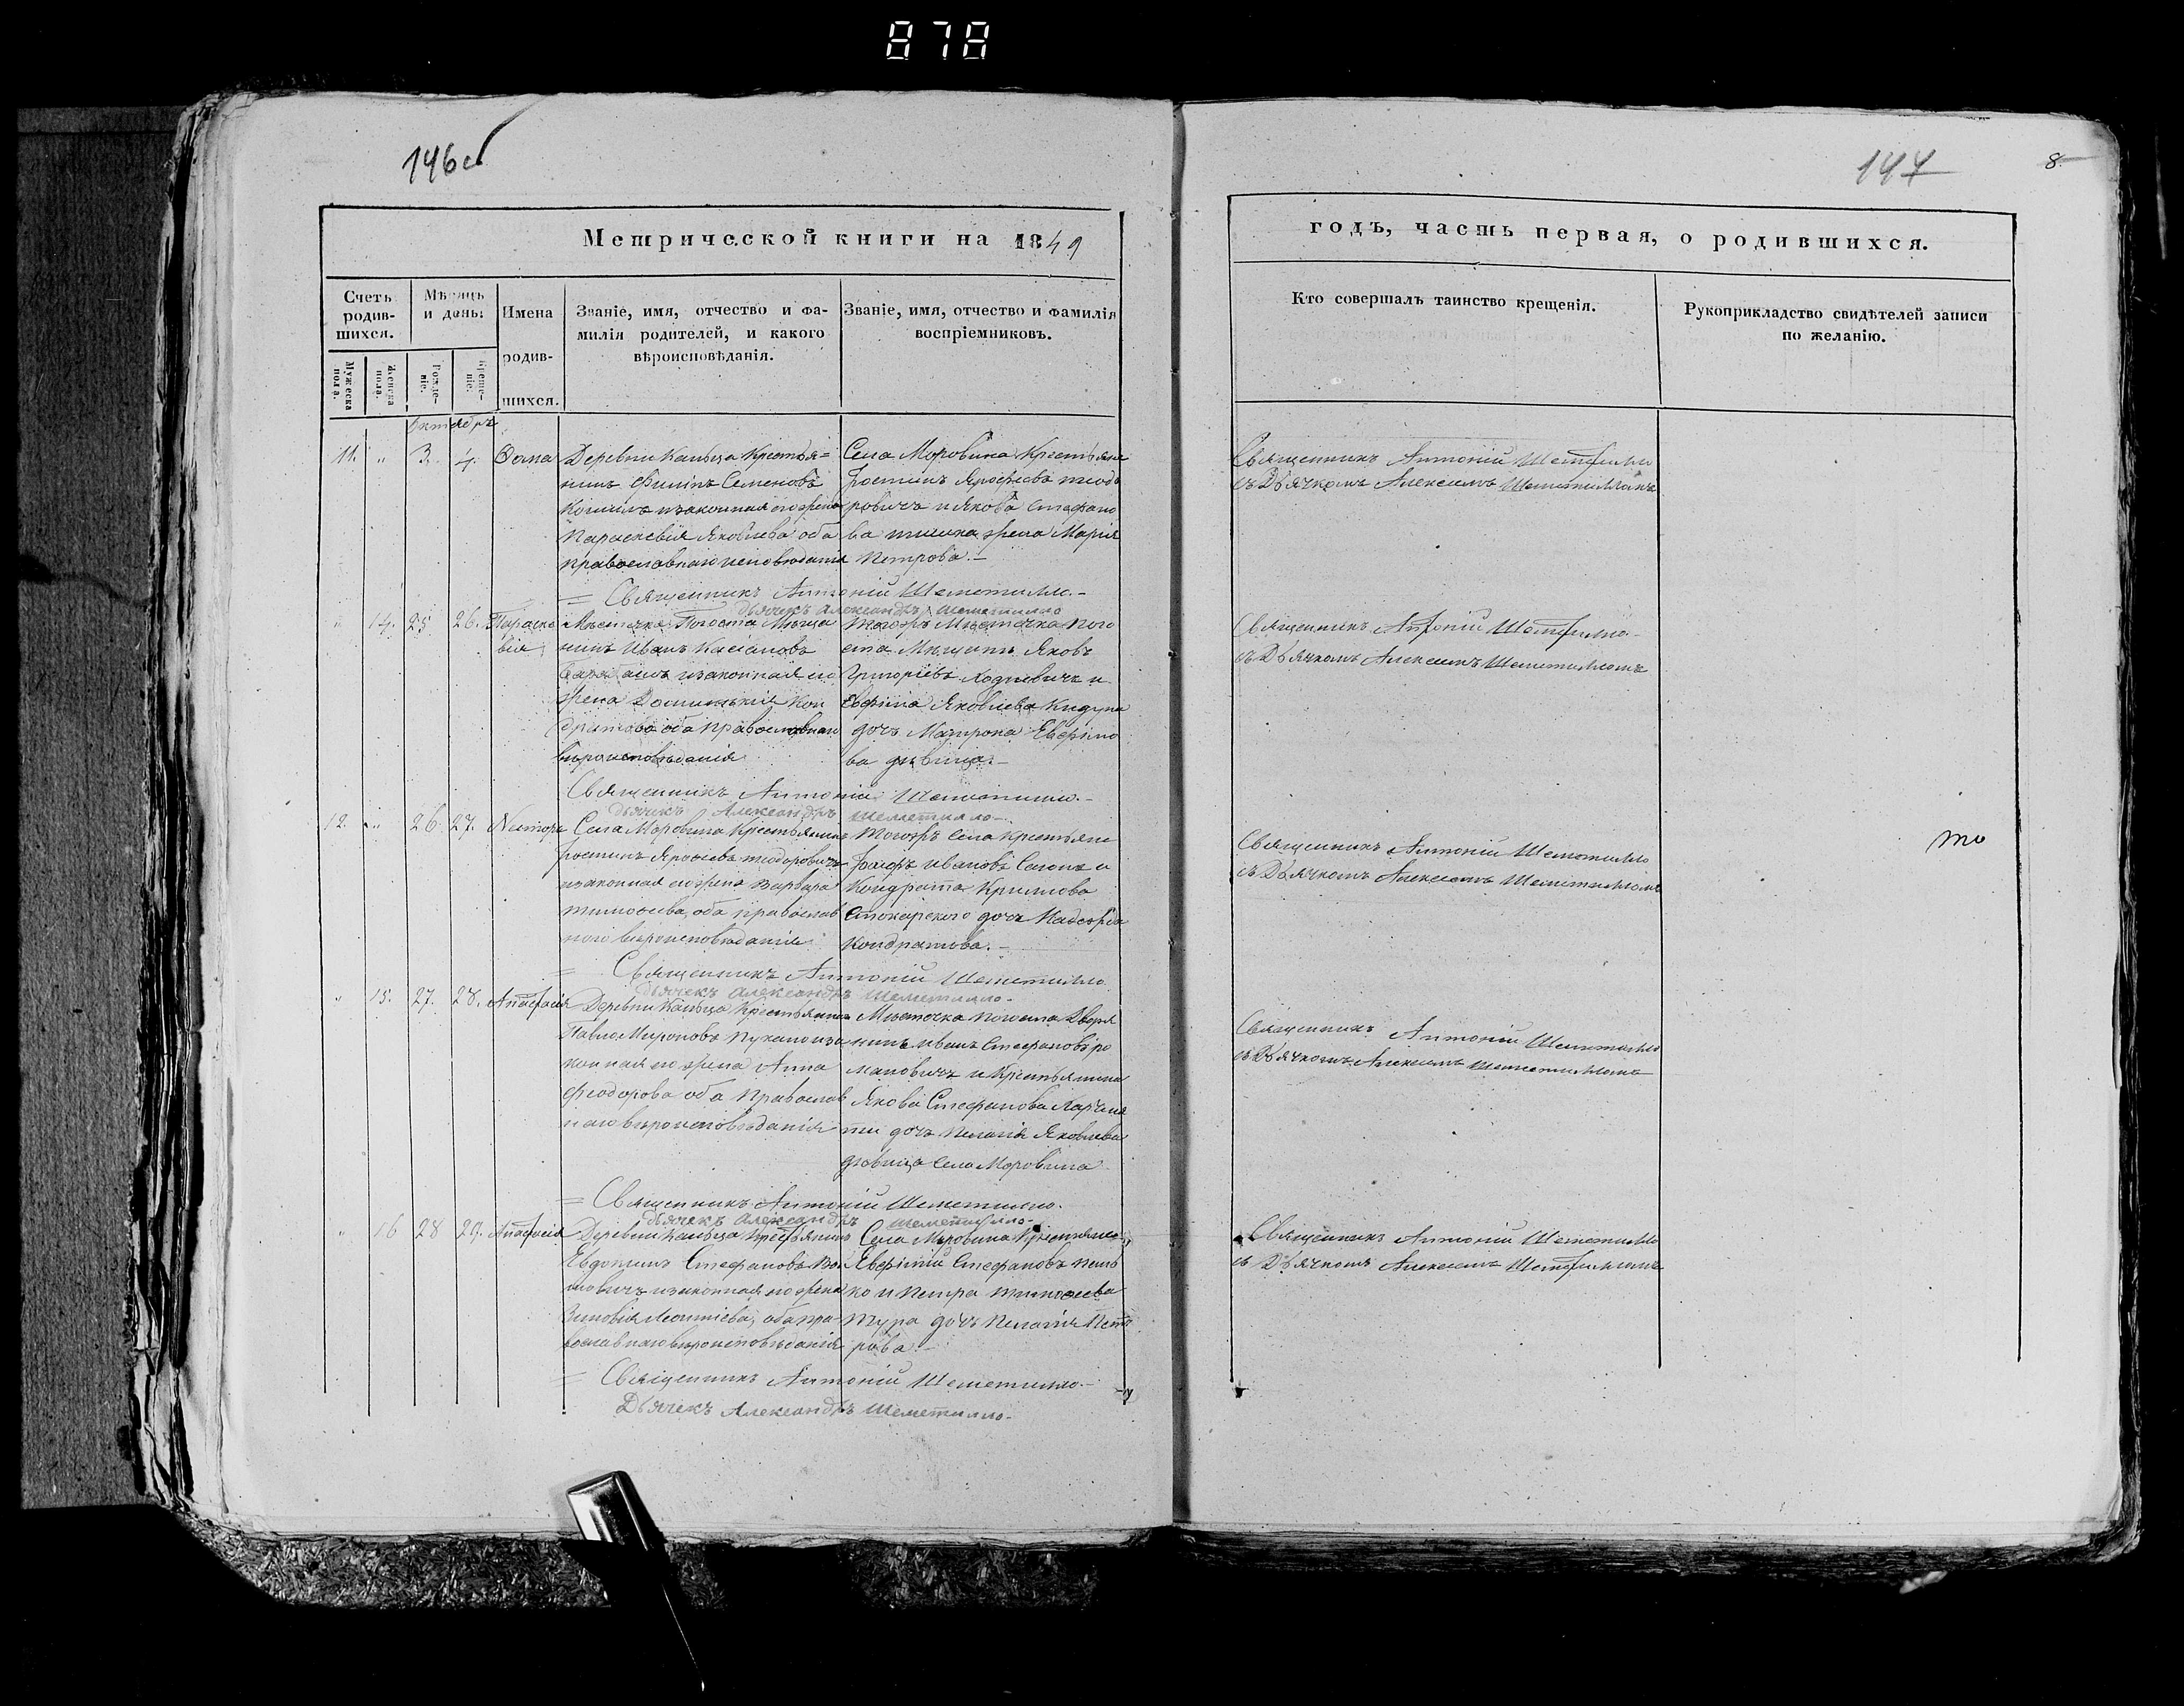 878
146 об
147
8.
Метрической книги на 1849
годъ, часть первая, о родившихся.
Счетъ родив- шихся.
Мѣсяцъ и день:
Имена родив- шихся.
Званіе, имя, отчество и фа- милія родителей, и какого вѣроисповѣданія.
Званіе, имя, отчество и фамилія воспріемниковъ.
Кто совершалъ таинство крещенія.
Рукоприкладство свидѣтелей записи по желанію.
Мужеска пола.
Женска пола.
Рожде- ніе.
Креще- ніе.
Октябрь
11. " 3. 4. Фома
Деревни Каньца Крестья=
нинъ Филипъ Семеновъ
изаконная его жена
Параскевія Яковлева оба
православнаго исповѣданія
Села Моровина Крестьяне
Іустинъ Ярофѣевъ теодо
ровичъ и Якова Стефано
ва жена Марія
Петрова.-
= Священникъ Антоній Шеметилло.-
Дьячекъ Александръ Шеметилло
Священникъ Антоній Шеметилло
съ Дьячкомъ Алексѣемъ Шеметилломъ
" 14. 25. 26. Параске
вія
Мѣстечка Погоста Мѣща
нинъ Иванъ Касіановъ
изаконная его
жена Домникія Кон
дратова оба православнаго
вѣроисповѣданія
тогожъ Мѣстечка Пого
ста Мѣщанъ Яковъ
Григоріевъ Ходкевичъ и
Евфима Яковлева
дочь Матрона Евфимо
ва дѣвица.-
Священникъ Антоній Шеметилло.-
Дьячекъ Александръ Шеметилло.-
Священникъ Антоній Шеметилло.-
съ Дьячкомъ Алексѣемъ Шеметилломъ
12. " 26. 27. Несторъ
Села Моровина Крестьянинъ
Іустинъ Ярофѣевъ теодоровичъ
изаконная его жена Варвара
тимофѣева, оба православ
наго вѣроисповѣданія
Тогожъ села крестьяне
Іосифъ Ивановъ и
Кондрата
дочь Надежда
Кондратова.-
= Священникъ Антоній Шеметилло
Дьячекъ Александръ Шеметилло.
Священникъ Антоній Шеметилло
съ Дьячкомъ Алексѣемъ Шеметилломъ
то
" 15. 27. 28. Анастасія
Деревни Каньца Крестьянинъ
Павелъ Мироновъ иза
конная его жена Анна
Феодорова оба Православ
наго вѣроисповѣданія
Мѣстечка Погоста Дворя
нинъ Иванъ Стефановъ ро
мановичъ и Крестьянина
Якова Стефанова
дочь Пелагія Яковлева
дѣвица села Моровина
= Священникъ Антоній Шеметилло.
Дьячекъ Александръ Шеметилло.-
Священникъ Антоній Шеметилло
съ Дьячкомъ Алексѣемъ Шеметилломъ
" 16 28 29. Анастасія
Деревни Каньца Крестьянинъ
Евдокимъ Стефановъ
изаконная его жена
Зиновія Леонтіева, оба пра-
вославнаго вѣроисповѣданія
Села Моровина Крестьяне
Евфимій Стефановъ
и Петра тимофѣева
Тура дочь Пелагія Пет
рова.-
= Священникъ Антоній Шеметилло.-
Дьячекъ Александръ Шеметилло.-
Священникъ Антоній Шеметилло
съ Дьячкомъ Алексѣемъ Шеметилломъ